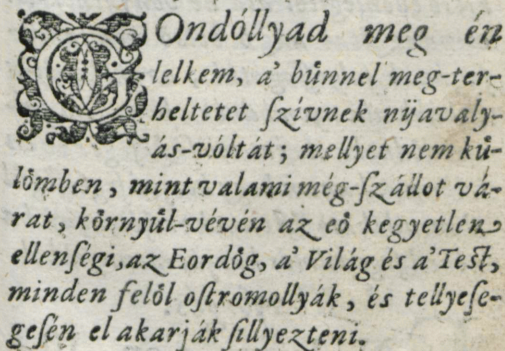 GOndóllyad meg én
lelkem, a' bűnnel meg-ter-
heltetet ſzívnek nijavaly-
ás-vóltát; mellyet nem kű-
lőmben, mint valami még-ſzállot vá-
rat, kőrnyűl-vévén az eő kegyetlen
ellenſégi, az Eordőg, a' Világ és a' Teſt,
minden felől oſtromollyák, és tellyeſe-
geſén el akarják ſillyezteni.